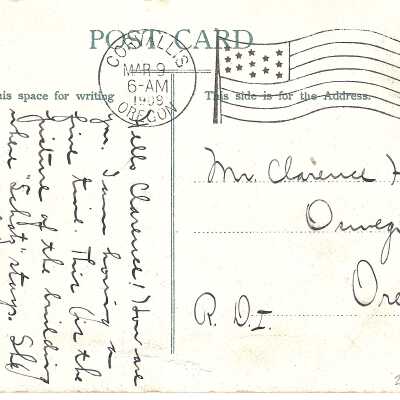 POST CARD
CORVALLIS
MAR 9
6-AM
1909
OREGON
his space for writing
This side is for the Address.
Hello Clarence! How are
you, I am having a
fine time. This is the
picture of the building
where "Schotz" stays. She
Mr. Clarence H
Osweg
Ore
R. D. I.